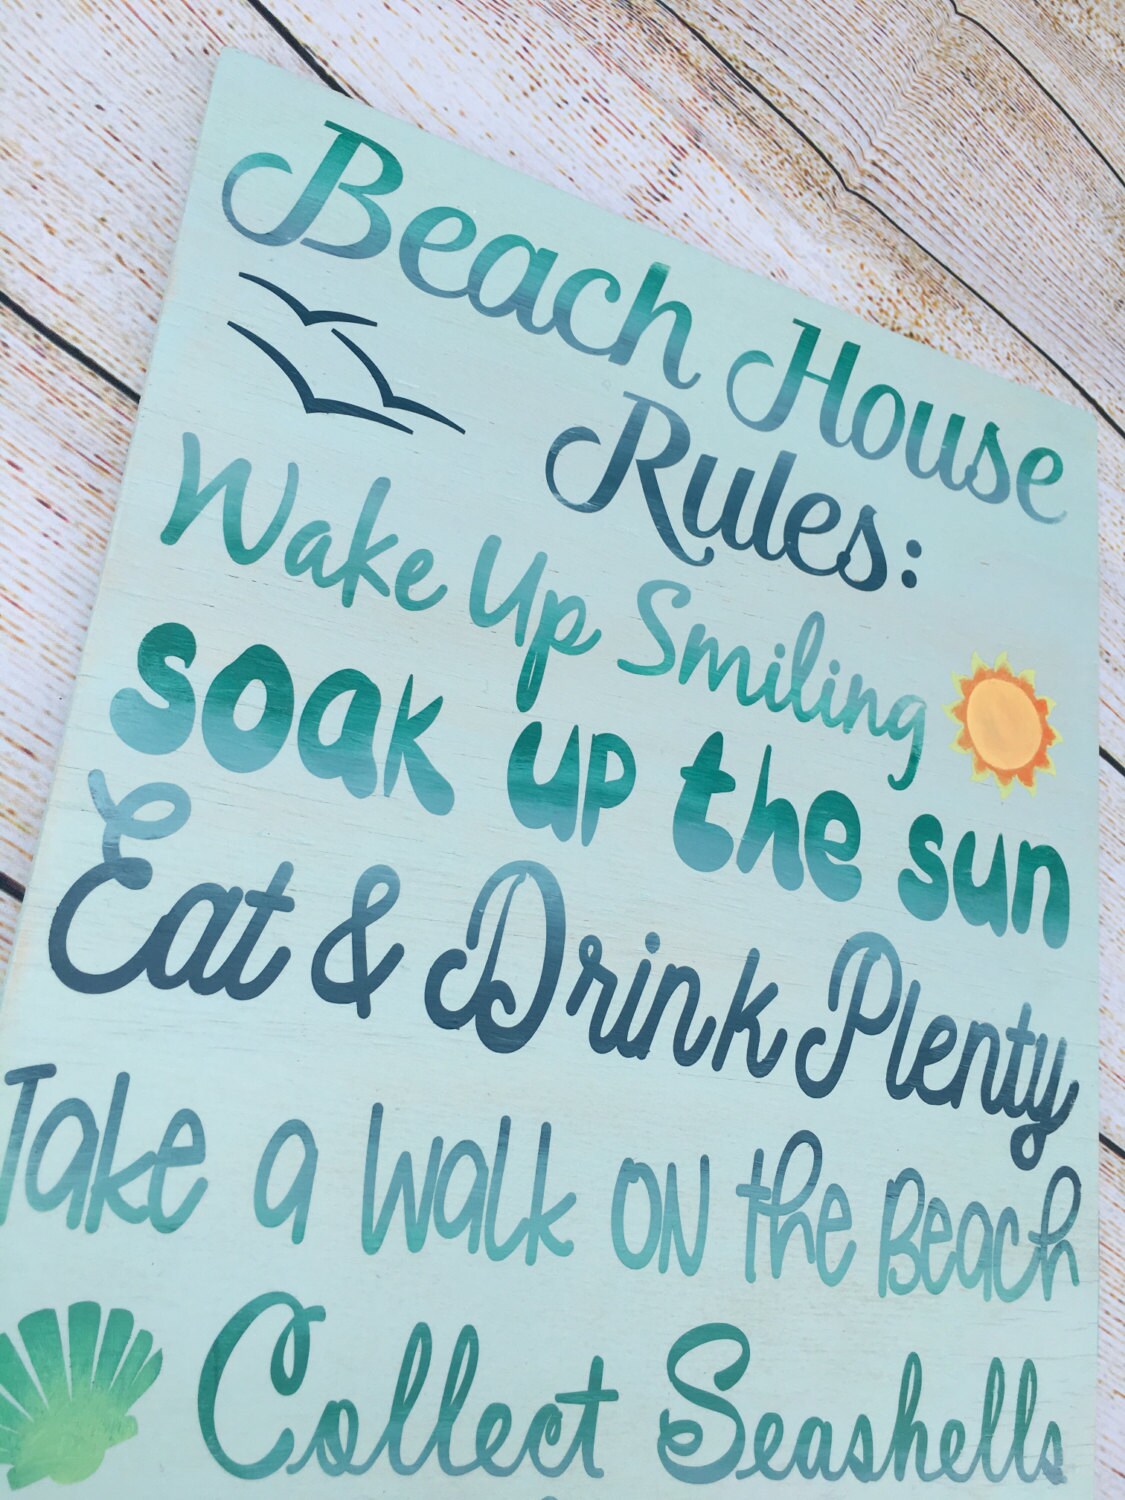 Beach House
Rules:
Wake Up Smiling
soak up the sun
Eat & Drink Plenty
Take a Walk ON the Beach
Collect Seashells